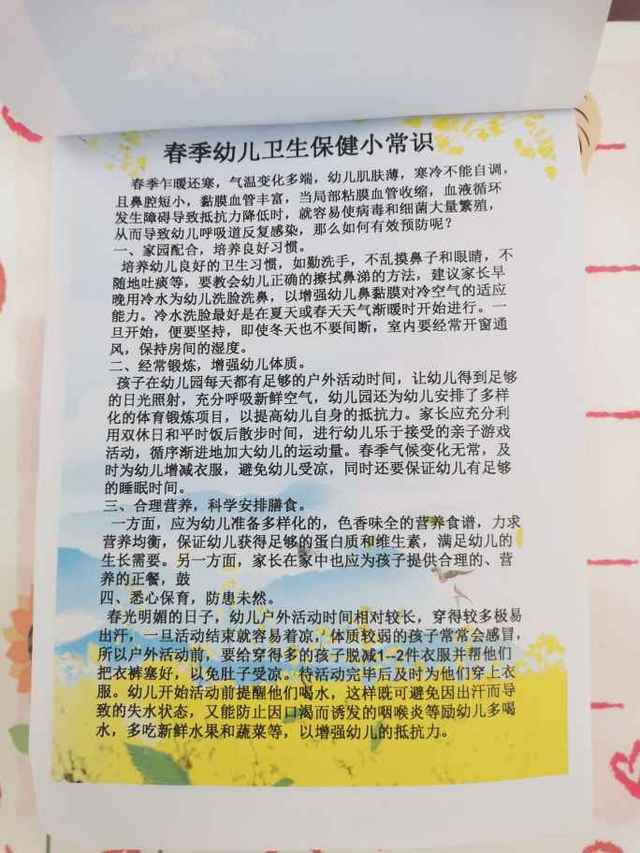 春季幼儿卫生保健小常识
春季乍暖还寒，气温变化多端，幼儿肌肤薄，寒冷不能自调，
且鼻腔短小，黏膜血管丰富，当局部粘膜血管收缩，血液循环
发生障碍导致抵抗力降低时，就容易使病毒和细菌大量繁殖，
从而导致幼儿呼吸道反复感染，那么如何有效预防呢？
一、家园配合，培养良好习惯。
培养幼儿良好的卫生习惯，如勤洗手，不乱摸鼻子和眼睛，不
随地吐痰等，要教会幼儿正确的擦拭鼻涕的方法，建议家长早
晚用冷水为幼儿洗脸洗鼻，以增强幼儿鼻黏膜对冷空气的适应
能力。冷水洗脸最好是在夏天或春天天气渐暖时开始进行。一
旦开始，便要坚持，即使冬天也不要间断，室内要经常开窗通
风，保持房间的湿度。
二、经常锻炼，增强幼儿体质。
孩子在幼儿园每天都有足够的户外活动时间，让幼儿得到足够
的日光照射，充分呼吸新鲜空气，幼儿园还为幼儿安排了多样
化的体育锻炼项目，以提高幼儿自身的抵抗力。家长应充分利
用双休日和平时饭后散步时间，进行幼儿乐于接受的亲子游戏
活动，循序渐进地加大幼儿的运动量。春季气候变化无常，及
时为幼儿增减衣服，避免幼儿受凉，同时还要保证幼儿有足够
的睡眠时间。
三、合理营养，科学安排膳食。
一方面，应为幼儿准备多样化的，色香味全的营养食谱，力求
营养均衡，保证幼儿获得足够的蛋白质和维生素，满足幼儿的
生长需要。另一方面，家长在家中也应为孩子提供合理的、营
养的正餐，鼓
四、悉心保育，防患未然。
春光明媚的日子，幼儿户外活动时间相对较长，穿得较多极易
出汗，一旦活动结束就容易着凉，体质较弱的孩子常常会感冒，
所以户外活动前，要给穿得多的孩子脱减1--2件衣服并帮他们
把衣裤塞好，以免肚子受凉。待活动完毕后及时为他们穿上衣
服。幼儿开始活动前提醒他们喝水，这样既可避免因出汗而导
致的失水状态，又能防止因口渴而诱发的咽喉炎等励幼儿多喝
水，多吃新鲜水果和蔬菜等，以增强幼儿的抵抗力。